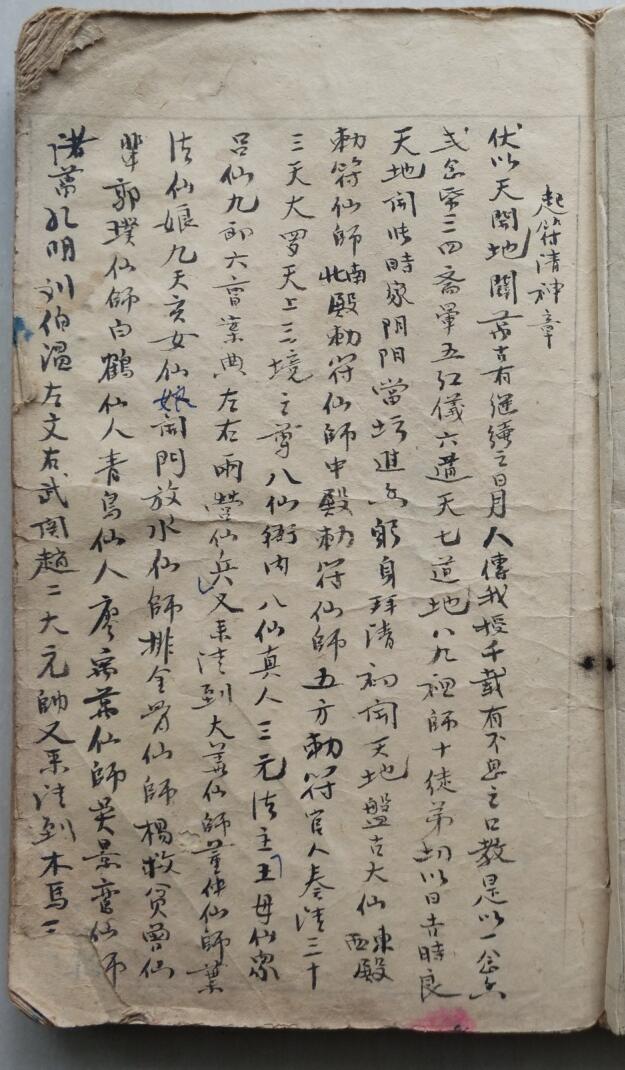 起符清神章
伏以天開地闢 古有 之日月人傳我授千載有不 之口教是以一念
弍念 三四齋 五紅儀六遵天七道地八九祖師十徒弟切以日吉時良
天地開 時家陰陽當 進 躬身拜清初開天地盤古大仙東西殿
勅符仙師南北殿勅符仙師中殿勅符仙師五方勅符官人奏清三十
三天大罗天上三境之尊八仙衙內八仙真人三元法主王母仙家
呂仙九郎六曹案典左右兩營仙兵又來清到大 仙師董仲仙師葉
法仙娘九天玄女仙娘開門放水仙師排 仙師楊救貧曾仙
輩郭璞仙師白鶴仙人青鳥仙人廖 葉仙師吳景鸞仙師
諸葛孔明刘伯溫左文右武関趙二大元帥又來清到木馬三